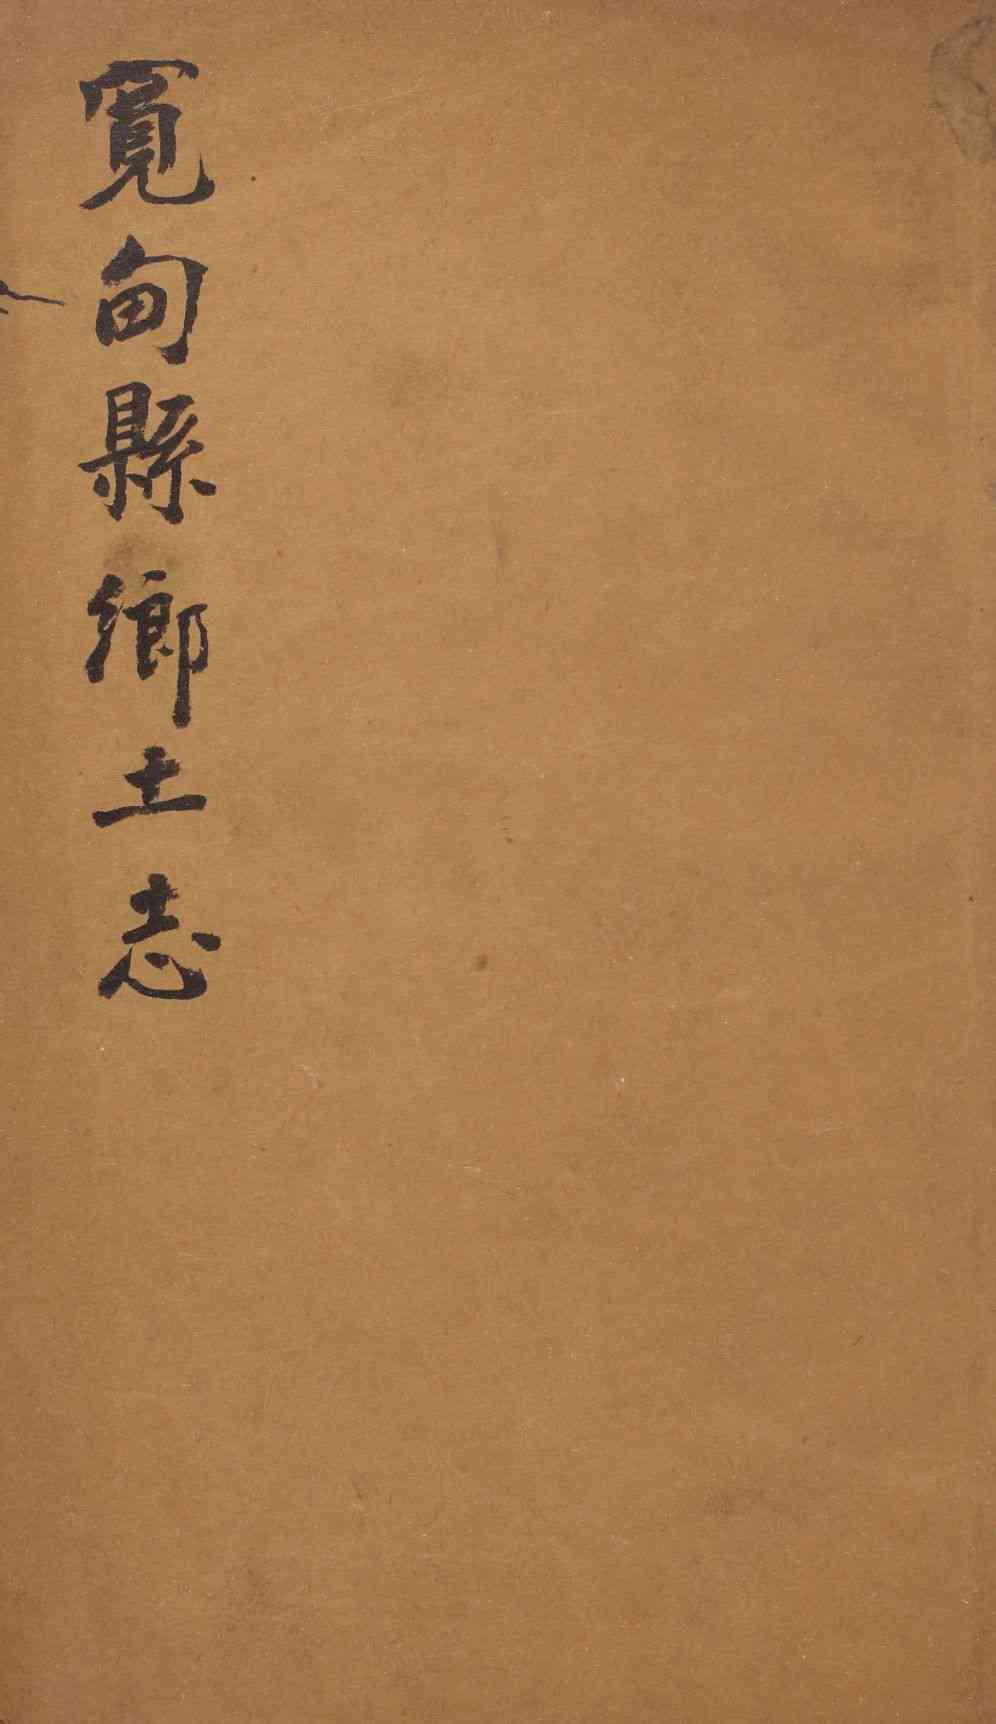 寬甸縣鄉土志